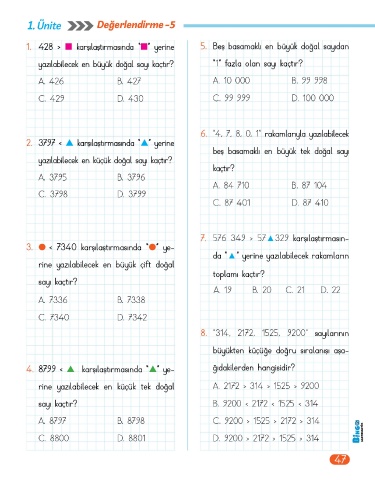 1. Ünite Değerlendirme -5
1. 428 > ■ karşılaştırmasında "■" yerine
yazılabilecek en büyük doğal sayı kaçtır?
A. 426 B. 427
C. 429 D. 430
2. 3797 < ▲ karşılaştırmasında "▲" yerine
yazılabilecek en küçük doğal sayı kaçtır?
A. 3795 B. 3796
C. 3798 D. 3799
3. ● < 7340 karşılaştırmasında "●" ye-
rine yazılabilecek en büyük çift doğal
sayı kaçtır?
A. 7336 B. 7338
C. 7340 D. 7342
4. 8799 < ▲ karşılaştırmasında "▲" ye-
rine yazılabilecek en küçük tek doğal
sayı kaçtır?
A. 8797 B. 8798
C. 8800 D. 8801
5. Beş basamaklı en büyük doğal sayıdan
"1" fazla olan sayı kaçtır?
A. 10 000 B. 99 998
C. 99 999 D. 100 000
6. "4, 7, 8, 0, 1" rakamlarıyla yazılabilecek
beş basamaklı en büyük tek doğal sayı
kaçtır?
A. 84 710 B. 87 104
C. 87 401 D. 87 410
7. 576 349 > 57▲329 karşılaştırmasın-
da "▲" yerine yazılabilecek rakamların
toplamı kaçtır?
A. 19 B. 20 C. 21 D. 22
8. "314, 2172, 1525, 9200" sayılarının
büyükten küçüğe doğru sıralanışı aşa-
ğıdakilerden hangisidir?
A. 2172 > 314 > 1525 > 9200
B. 9200 < 2172 < 1525 < 314
C. 9200 > 1525 > 2172 > 314
D. 9200 > 2172 > 1525 > 314
47